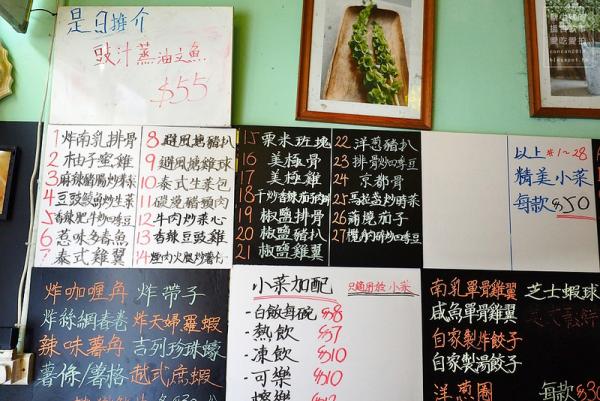 是日推介
豉汁蒸油文魚
$55
1 炸南乳排骨
2 柚子蜜雞
3 麻辣豬腸炒時菜
4 豆豉鯪魚炒生菜
5 香辣肥牛炒四季豆
6 惹味多春魚
7 泰式雞翼
8 避風塘豬扒
9 避風塘雞球
10 泰式生菜包
11 碳燒豬頸肉
12 牛肉炒菜心
13 香辣豆豉雞
14
15 粟米班塊
16 美極骨
17 美極雞
18 干炒香辣茄子
19 椒鹽排骨
20 椒鹽豬扒
21 椒鹽雞翼
22 洋蔥豬扒
23 排骨炒四季豆
24 京都骨
25 馬拉盞炒時菜
26 蒲燒茄子
27 欖角肉碎炒四季豆
以上 #1~28
精美小菜
每款 $50
炸咖喱角 炸帶子
炸絲網春卷 炸天婦羅蝦
辣味薯角 吉列珍珠蠔
薯條/薯格 越式蔗蝦
小菜加配 只適用於小菜
-白飯每碗 $8
-熱飲 $7
-凍飲 $10
-可樂 $10
南乳單骨雞翼 芝士蝦球
咸魚單骨雞翼
自家製炸餃子
自家製湯餃子
洋蔥圈 每款 $30